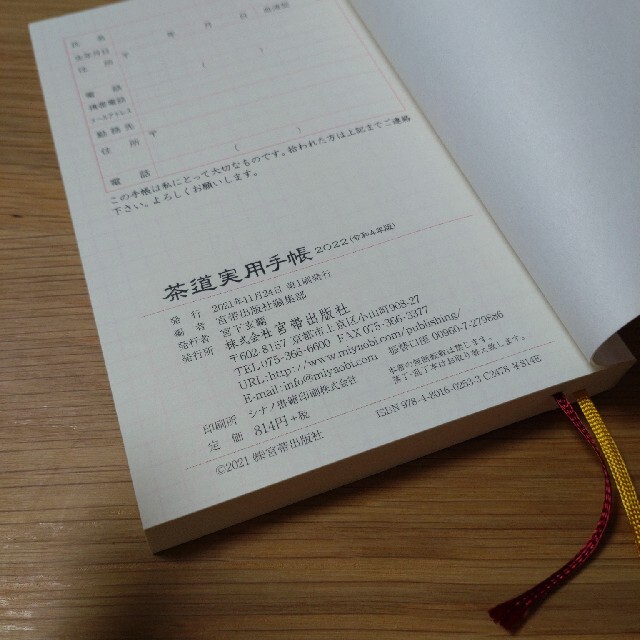 氏名
年 月 日
生年月日
住所 〒
( )
電話
携帯電話
メールアドレス
勤務先
住所 〒
電話 ( )
この手帳は私にとって大切なものです。拾われた方は上記までご連絡
下さい。よろしくお願いします。
茶道実用手帳 2022(令和4年版)
発行 2021年11月24日 第1刷発行
編者 宮帯出版社編集部
発行者 宮下玄覇
発行所 株式会社宮帯出版社
〒602-8157 京都市上京区小山町908-27
TEL.075-366-6600 FAX.075-366-3377
URL:http://www.miyaobi.com/publishing/
E-mail:info@miyaobi.com 振替口座 00960-7-279886
印刷所 シナノ書籍印刷株式会社
定価 814円+税
©2021 ㈱宮帯出版社